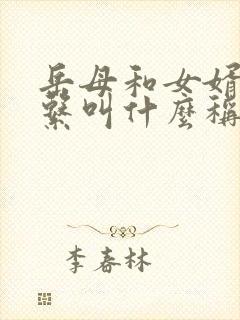 岳母和女婿
繫叫什麼稱
李春林